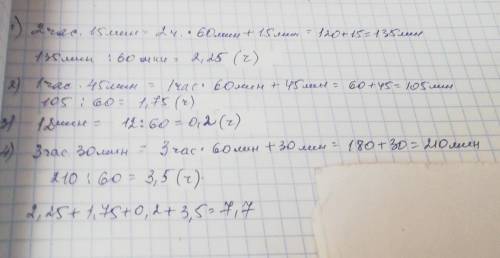 1) 2 час. 15 мин = 2 ч. · 60 мин + 15 мин = 120 + 15 = 135 мин
135 мин : 60 мин = 2,25 (ч)
2) 1 час · 45 мин = 1 час · 60 мин + 45 мин = 60 + 45 = 105 мин
105 : 60 = 1,75 (ч)
3) 12 мин = 12 : 60 = 0,2 (ч)
4) 3 час 30 мин = 3 час · 60 мин + 30 мин = 180 + 30 = 210 мин
210 : 60 = 3,5 (ч).
2,25 + 1,75 + 0,2 + 3,5 = 7,7